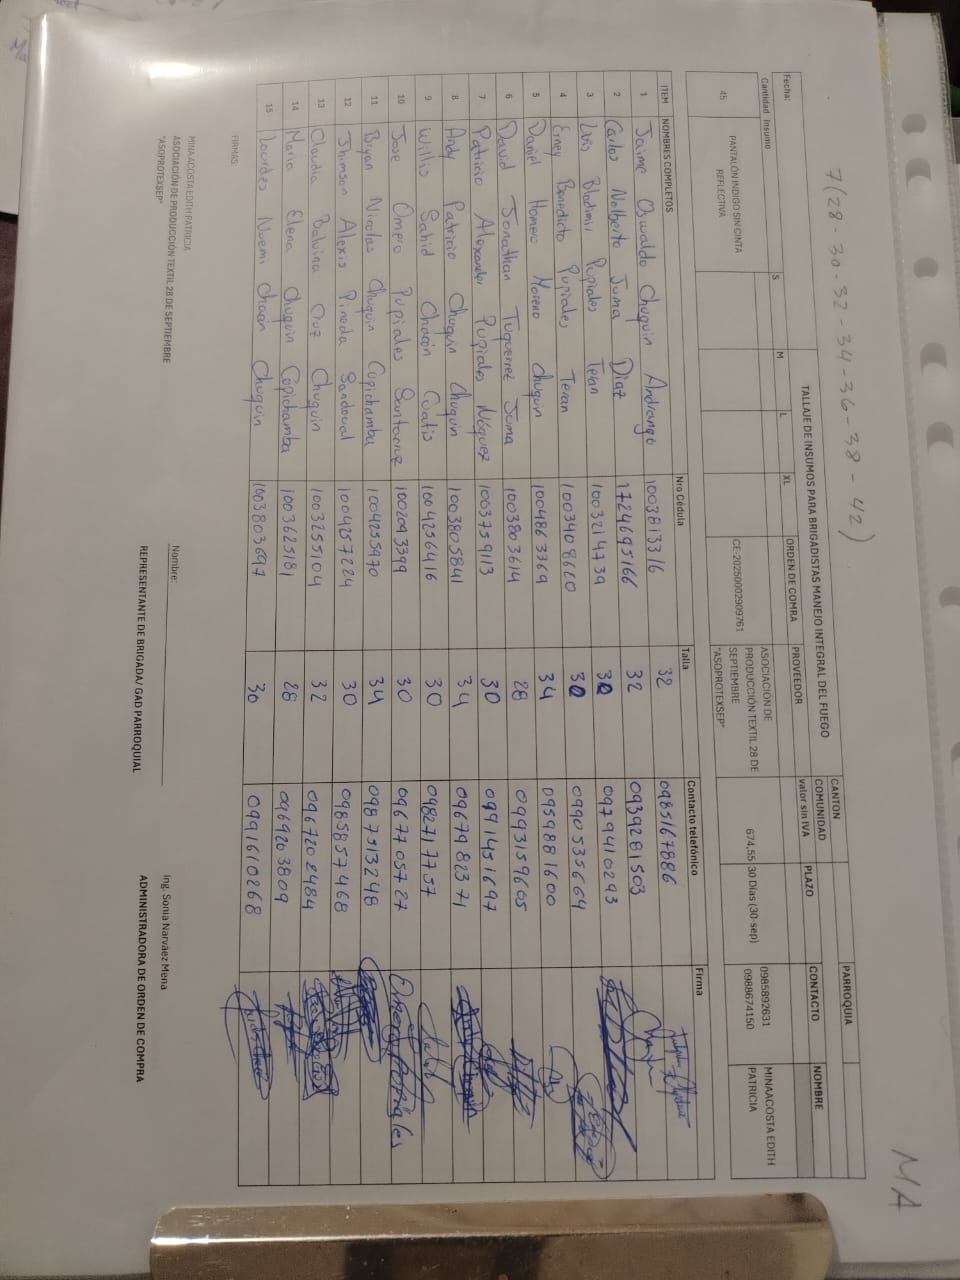 7(28-30-32-34-36-38-42)
MA
CANTON PARROQUIA
TALLAJE DE INSUMOS PARA BRIGADISTAS MANEJO INTEGRAL DEL FUEGO COMUNIDAD
Fecha: S M L XL ORDEN DE COMRA PROVEEDOR valor sin IVA PLAZO CONTACTO NOMBRE
Cantidad Insumo
45 PANTALÓN INDIGO SIN CINTA REFLECTIVA CE-20250002909761 ASOCIACIÓN DE PRODUCCIÓN TEXTIL 28 DE SEPTIEMBRE "ASOPROTEXSEP" 674,55 30 Días (30-sep) 0985892631 0988674150 MINAACOSTA EDITH PATRICIA
ITEM NOMBRES COMPLETOS Nro Cédula Talla Contacto telefónico Firma
1 Jaime Oswaldo Chuquin Andrango 1003813316 32 0985167886
2 Carlos Nolberto Juma Diaz 1724695166 32 0939281503
3 Luis Bladimir Pupiales Teran 1003214739 30 0979410293
4 Erney Benedicto Pupiales Teran 1003408660 30 0990535664
5 Daniel Homero Moreno Chuquin 1004863369 34 0959881600
6 David Jonathan Tuquerrez Juma 1003803614 28 0993159605
7 Patricio Alexander Pupiales Méquez 1003759113 30 0991451697
8 Andy Patricio Chuquin Chuquin 1003805841 34 0967982371 Andy Chuquin
9 Willis Sahid Chacón Cuatis 1004256416 30 0982717757
10 Jose Omero Pupiales Santacruz 1002093399 30 0967705727 Omero Pupiales
11 Bryan Nicolas Chuquin Copichamba 1004255970 34 0987513248
12 Jhimson Alexis Pineda Sandoval 1004257224 30 0985857468
13 Claudia Balvina Cruz Chuquin 1003255104 32 0967202484
14 Maria Elena Chuquin Copichamba 1003625181 28 0969203809
15 Lourdes Noemi Chaan Chuquin 1003803697 30 0991610268
FIRMAS:
Nombre: Ing. Sonia Narváez Mena
MINA ACOSTA EDITH PATRICIA
ASOCIACIÓN DE PRODUCCIÓN TEXTIL 28 DE SEPTIEMBRE REPRESENTANTE DE BRIGADA/ GAD PARROQUIAL ADMINISTRADORA DE ORDEN DE COMPRA
"ASOPROTEXSEP"